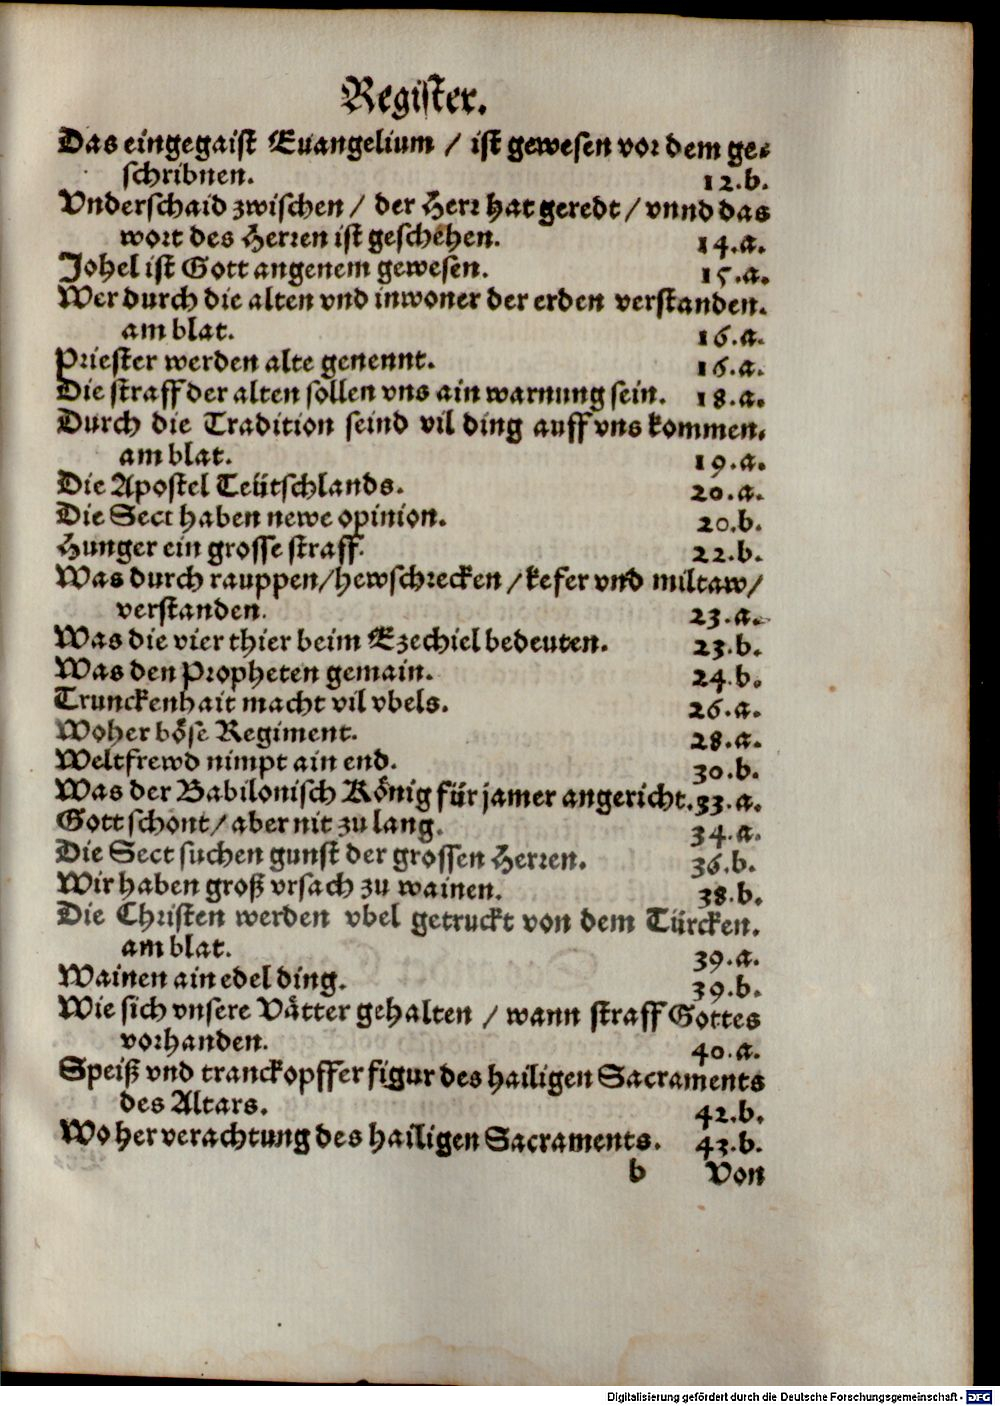 Register.
Das eingegaist Euangelium / ist gewesen vor dem ge⸗
schribnen. 12.b.
Vnderschaid zwischen / der Herr hat geredt / vnnd das
wort des Herren ist geschehen. 14.a.
Johel ist Gott angenem gewesen. 15.a.
Wer durch die alten vnd inwoner der erden verstanden.
am blat. 16.a.
Priester werden alte genennt. 16.a.
Die straff der alten sollen vns ain warnung sein. 18.a.
Durch die Tradition seind vil ding auff vns kommen.
am blat. 19.a.
Die Apostel Teütschlands. 20.a.
Die Sect haben newe opinion. 20.b.
Hunger ein grosse straff. 22.b.
Was durch rauppen/hewschrecken /kefer vnd miltaw/
verstanden. 23.a.
Was die vier thier beim Ezechiel bedeuten. 23.b.
Was den Propheten gemain. 24.b.
Trunckenhait macht vil vbels. 26.a.
Woher böse Regiment. 28.a.
Weltfrewd nimpt ain end. 30.b.
Was der Babilonisch König für jamer angericht. 33.a.
Gott schont/ aber nit zu lang. 34.a.
Die Sect suchen gunst der grossen Herren. 36.b.
Wir haben groß vrsach zu wainen. 38.b.
Die Christen werden vbel getruckt von dem Türcken.
am blat. 39.a.
Wainen ain edel ding. 39.b.
Wie sich vnsere Vätter gehalten / wann straff Gottes
vorhanden. 40.a.
Speiß vnd tranckopffer figur des hailigen Sacraments
des Altars. 42.b.
Woher verachtung des hailigen Sacraments. 43.b.
b Von
Digitalisierung gefördert durch die Deutsche Forschungsgemeinschaft - DFG